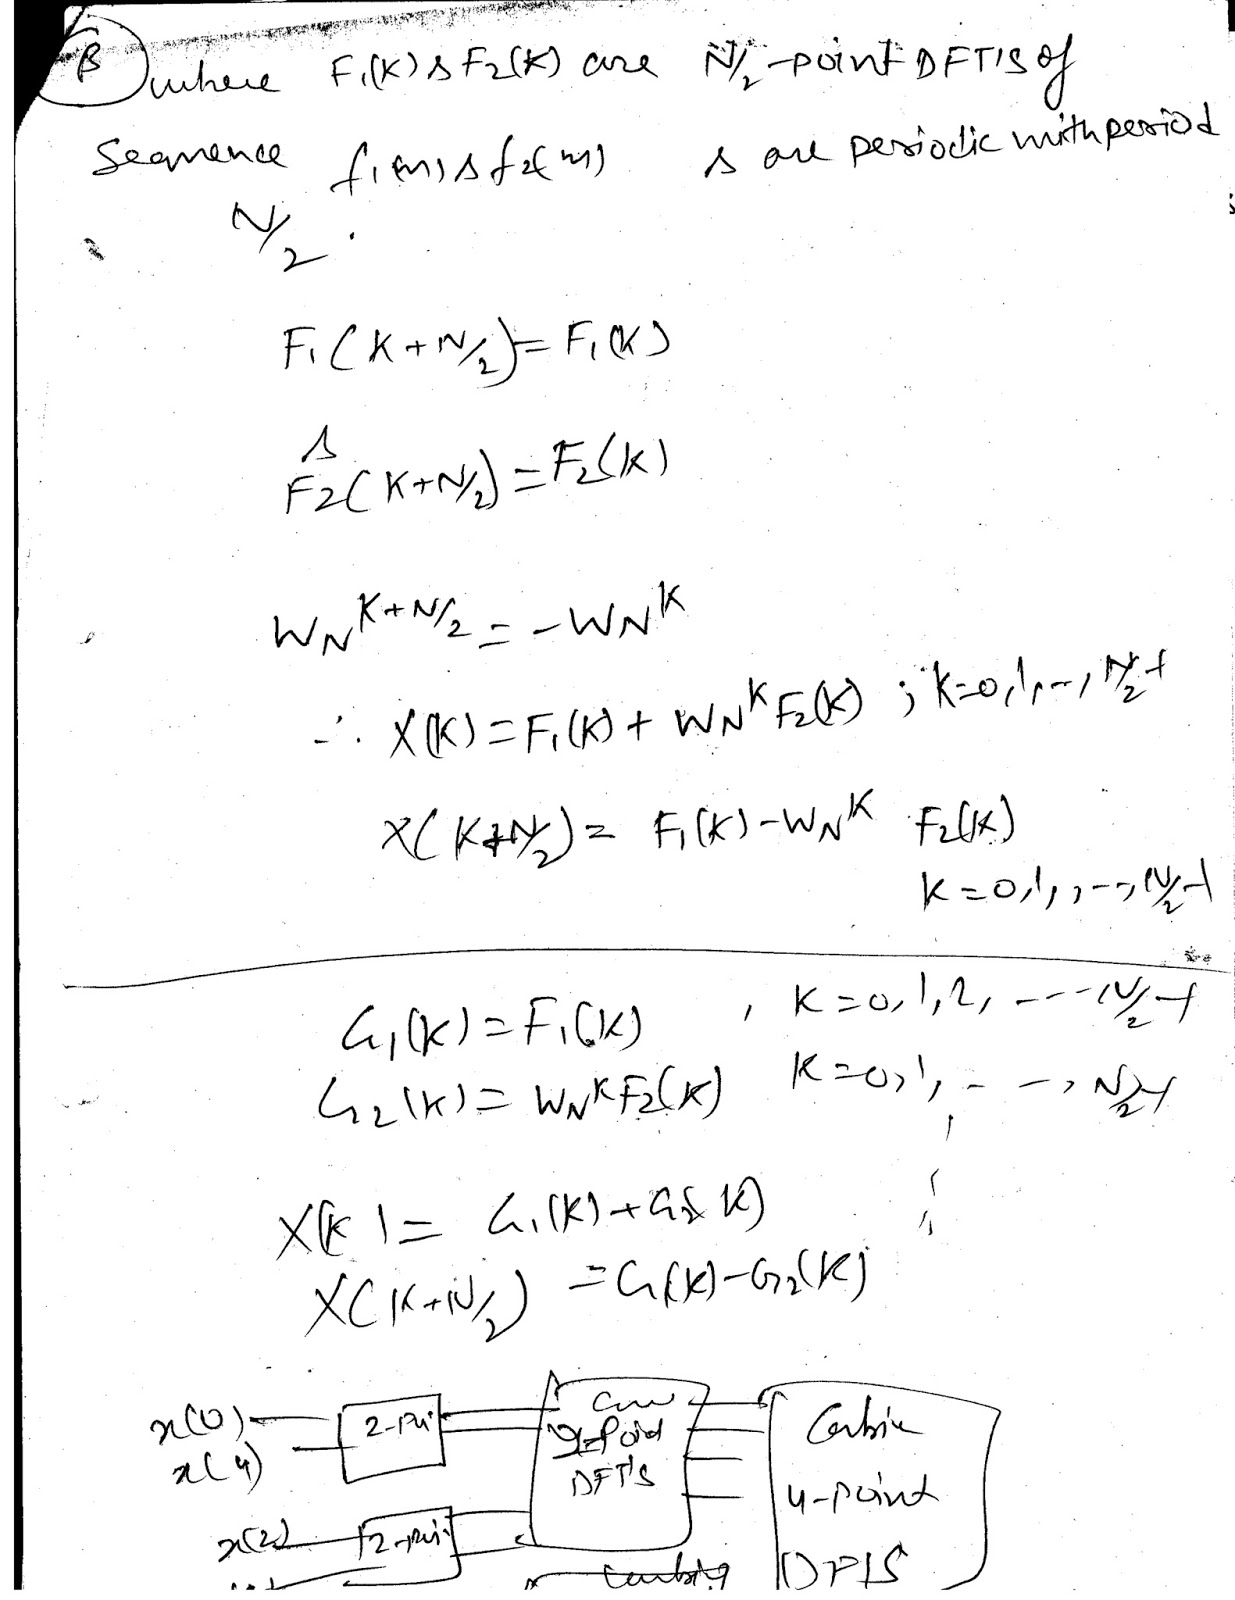 B
where F1(K) & F2(K) are N/2-point DFT's of
Sequence f1(m) & f2(m) & are periodic with period
N/2.
F1(K+N/2) = F1(K)
&
F2(K+N/2) = F2(K)
WN^K+N/2 = -WN^K
∴ X(K) = F1(K) + WN^K F2(K) ; K=0,1,--, N/2-1
X(K+N/2) = F1(K) - WN^K F2(K)
K=0,1,,--, N/2-1
G1(K) = F1(K) , K=0,1,2, ---- N/2-1
G2(K) = WN^K F2(K) K=0,1, - --, N/2-1
X(K) = G1(K) + G2(K)
X(K+N/2) = G1(K) - G2(K)
x(0)
x(4)
2-Poi
2-Point
DFT's
Combine
4-point
DFTS
x(2)
2-Poi